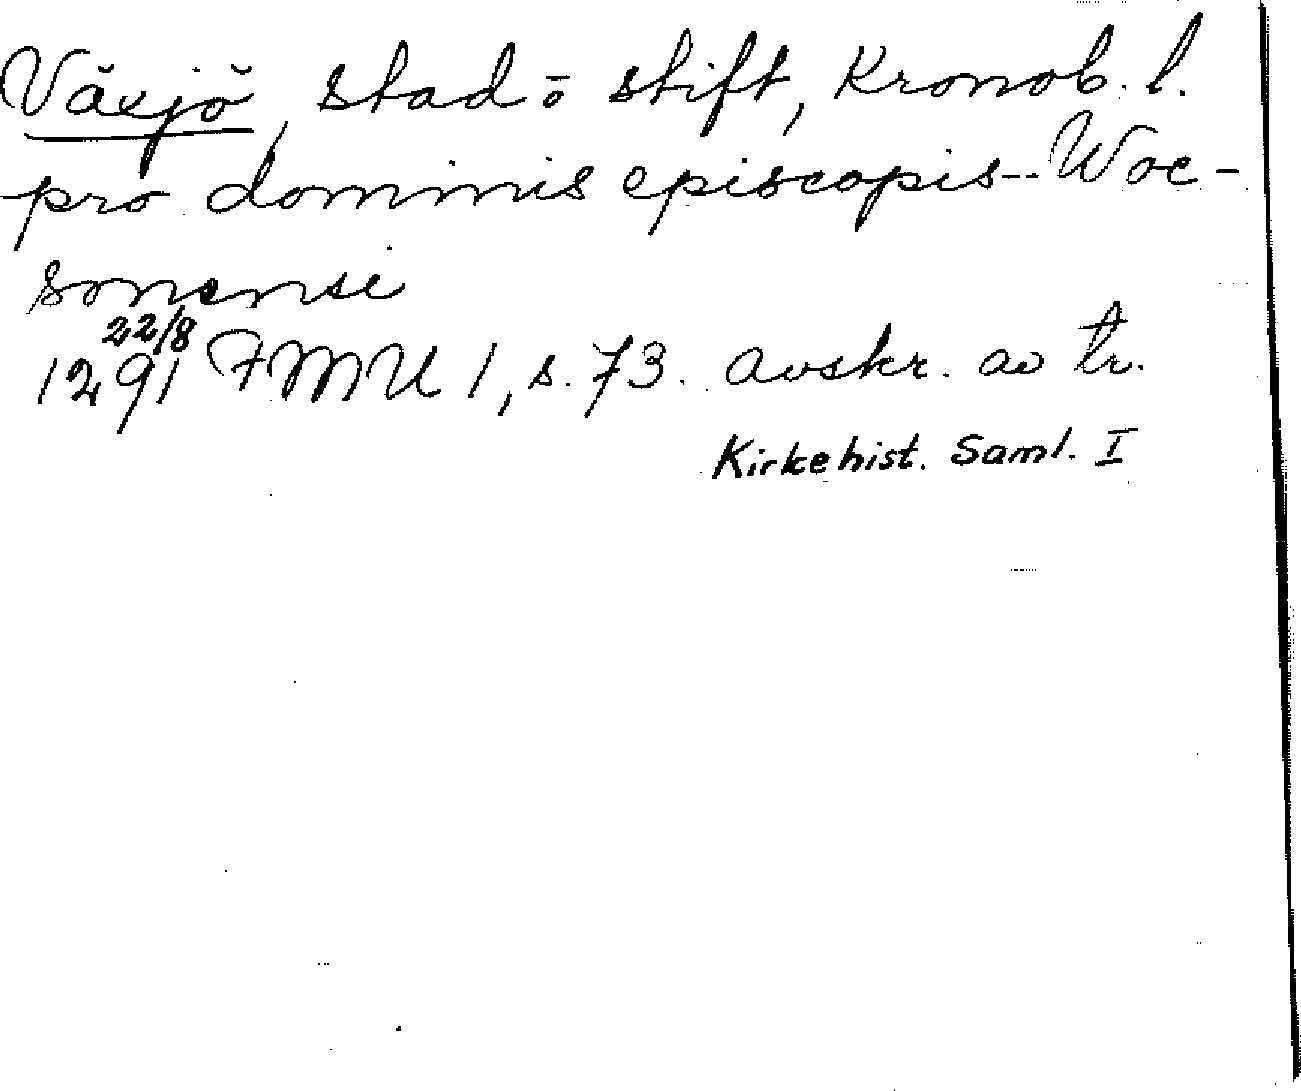 Växjö, stad o stift, Kronob. l.
pro dominis episcopis -- Woc-
sonensi
22/8
1291 FMU 1, s. 73. avskr. av tr.
Kirkehist. Saml. I